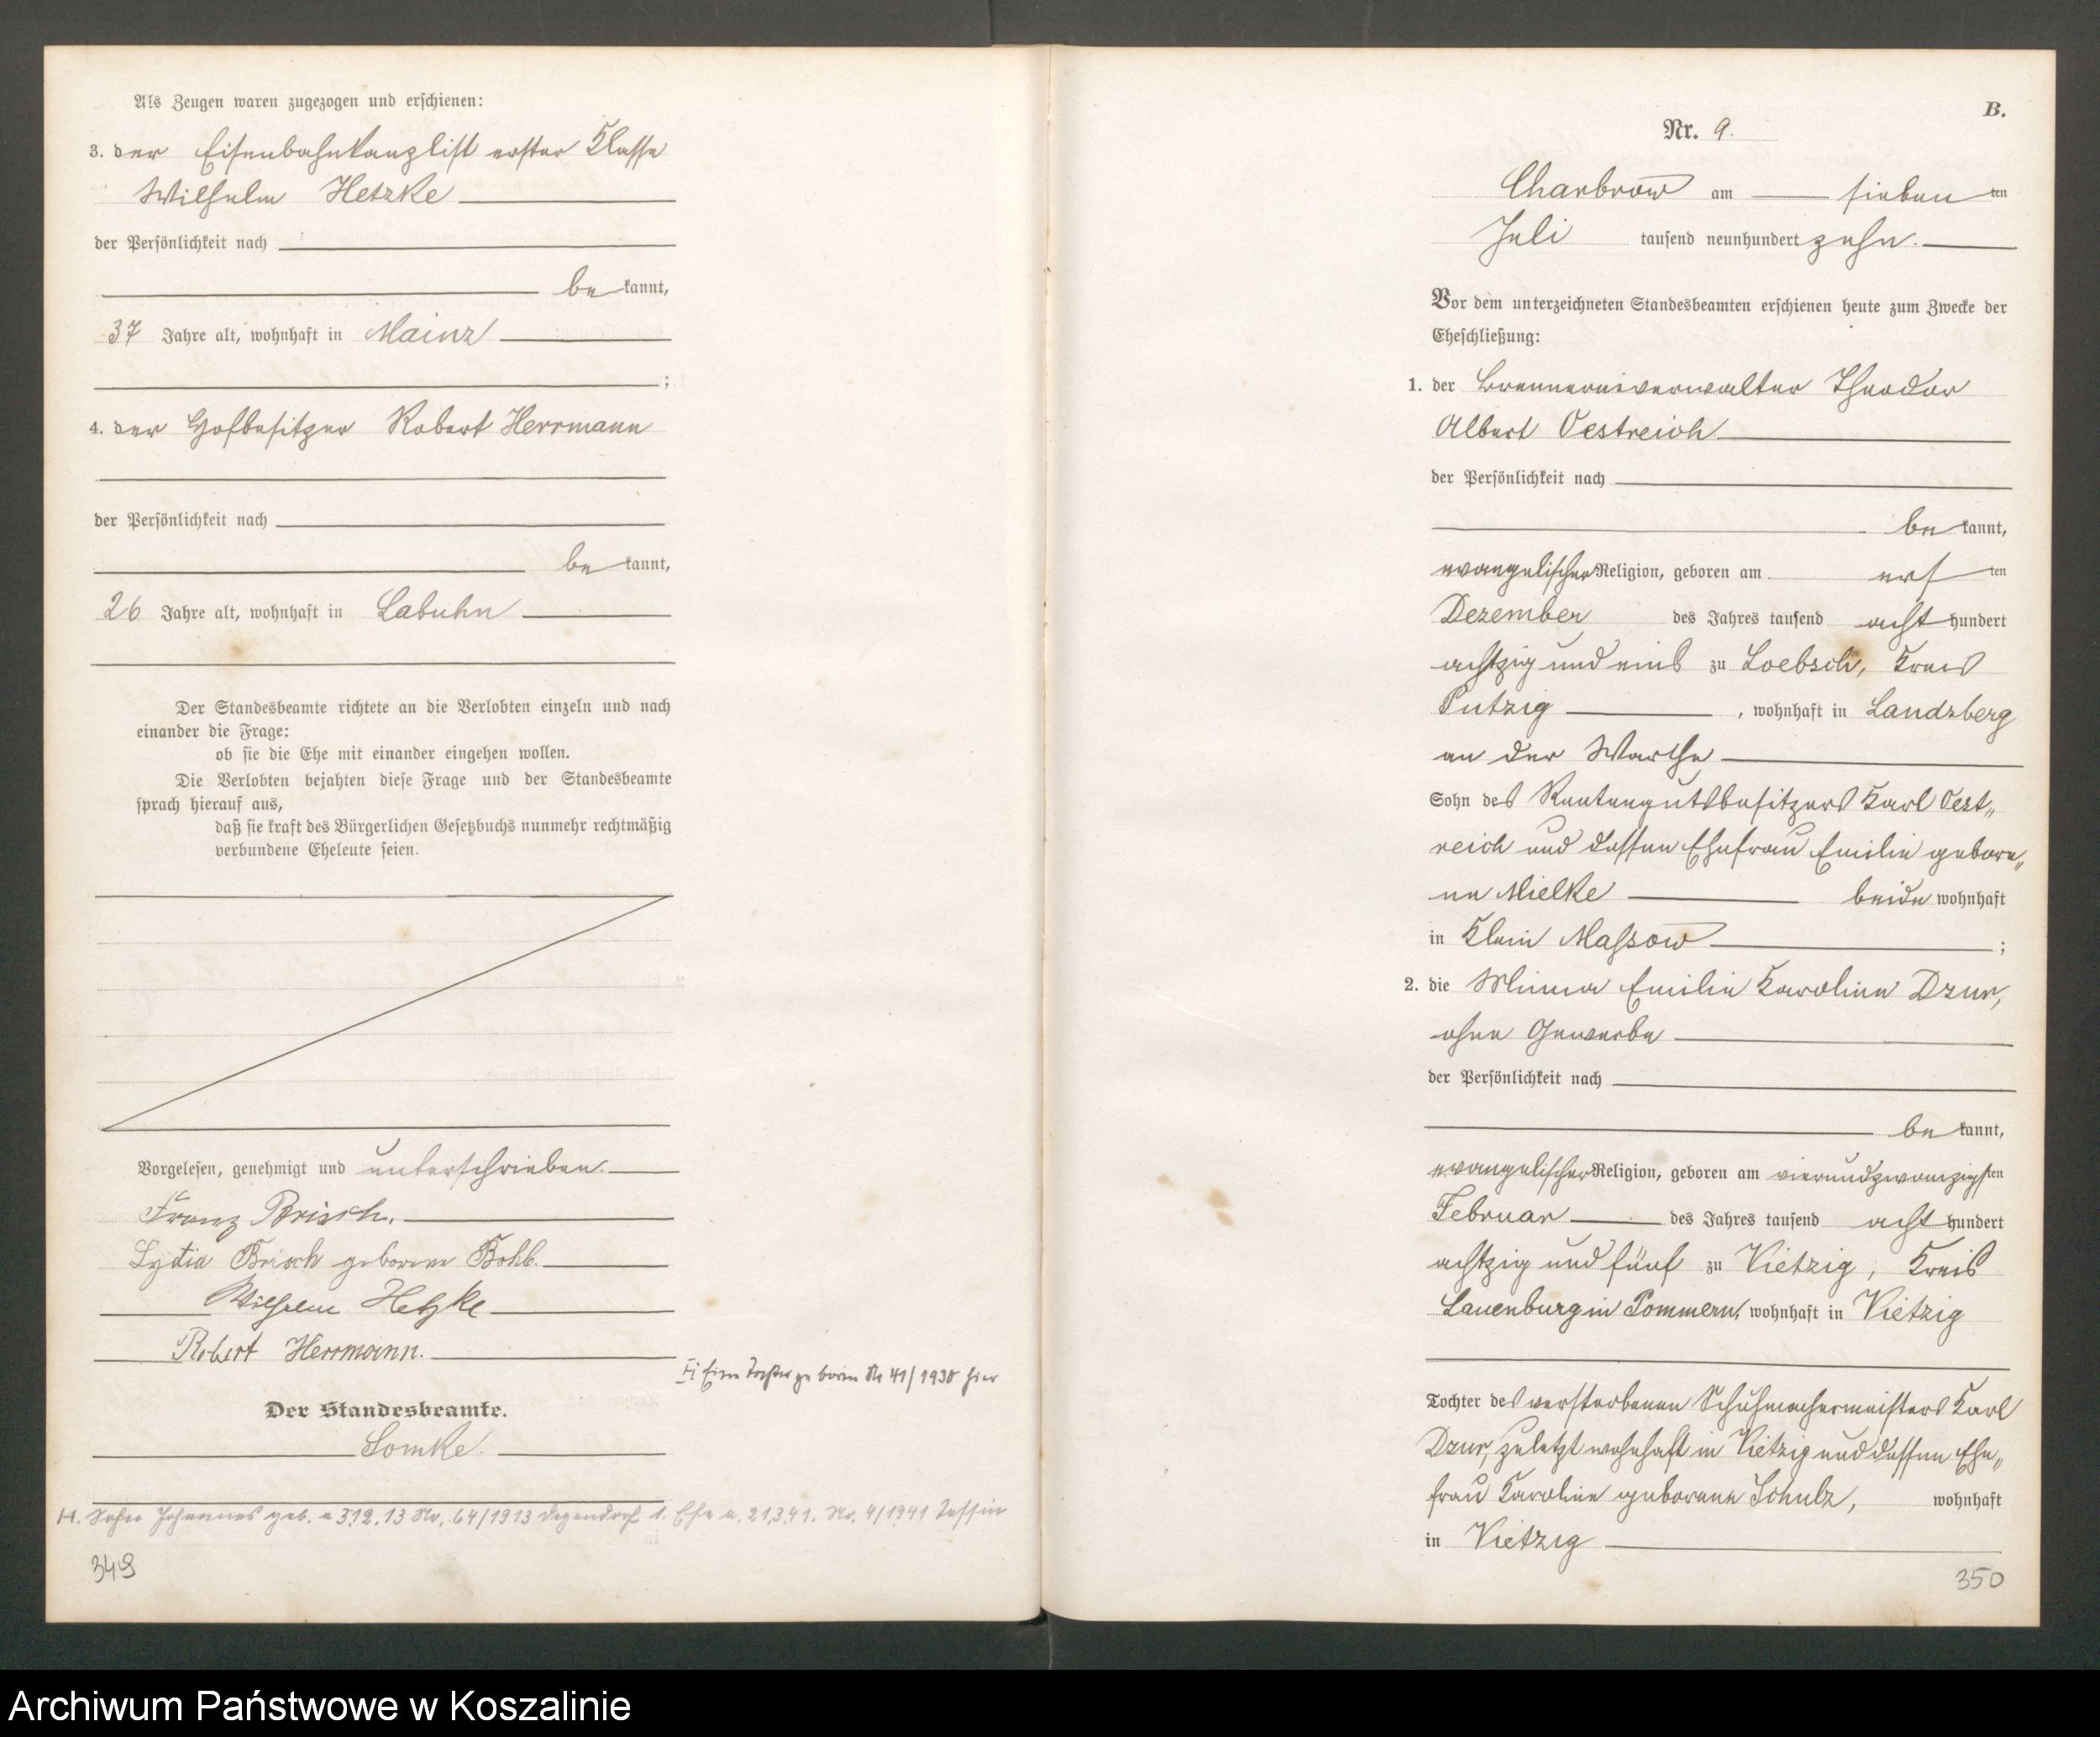 Als Zeugen waren zugezogen und erschienen:
3. der Eisenbahnkanzlist erster Klasse
Wilhelm Hetzke
der Persönlichkeit nach
be kannt,
37 Jahre alt, wohnhaft in Mainz
;
4. der Hofbesitzer Robert Herrmann
der Persönlichkeit nach
be kannt,
26 Jahre alt, wohnhaft in Labuhn
Der Standesbeamte richtete an die Verlobten einzeln und nach
einander die Frage:
ob sie die Ehe mit einander eingehen wollen.
Die Verlobten bejahten diese Frage und der Standesbeamte
sprach hierauf aus,
daß sie kraft des Bürgerlichen Gesetzbuchs nunmehr rechtmäßig
verbundene Eheleute seien.
Vorgelesen, genehmigt und unterschrieben.
Franz Brisch.
Lydia Brisch geborene
Wilhelm Hetzke
Robert Herrmann.
Eine Tochter geboren Nr 41/1930 hier
Der Standesbeamte.
Lomke.
H. Sohn Johannes geb. Nr. 64/1913 Degendorf 1. Ehe a. 21.3.41. Nr. 4/1941 Tessin
349
B.
Nr. 9.
Charbrow am sieben ten
Juli tausend neunhundert zehn.
Vor dem unterzeichneten Standesbeamten erschienen heute zum Zwecke der
Eheschließung:
1. der Brennereiverwalter Theodor
Albert Oestreich
der Persönlichkeit nach
be kannt,
evangelischer Religion, geboren am ers ten
Dezember des Jahres tausend acht hundert
achtzig und eins zu Loebsch, Kreis
Putzig, wohnhaft in Landsberg
an der Warthe
Sohn des Rentengutsbesitzers Karl Oest„
reich und dessen Ehefrau Emilie gebore„
ne Mielke beide wohnhaft
in Klein Massow ;
2. die Minna Emilie Karoline Dzur,
ohne Gewerbe
der Persönlichkeit nach
be kannt,
evangelischer Religion, geboren am vierundzwanzigsten
Februar des Jahres tausend acht hundert
achtzig und fünf zu Vietzig, Kreis
Lauenburg in Pommern, wohnhaft in Vietzig
Tochter des verstorbenen Schuhmachermeisters Karl
Dzur, zuletzt wohnhaft in Vietzig und dessen Ehe„
frau Karoline geborene Schulz, wohnhaft
in Vietzig
350
Archiwum Państwowe w Koszalinie